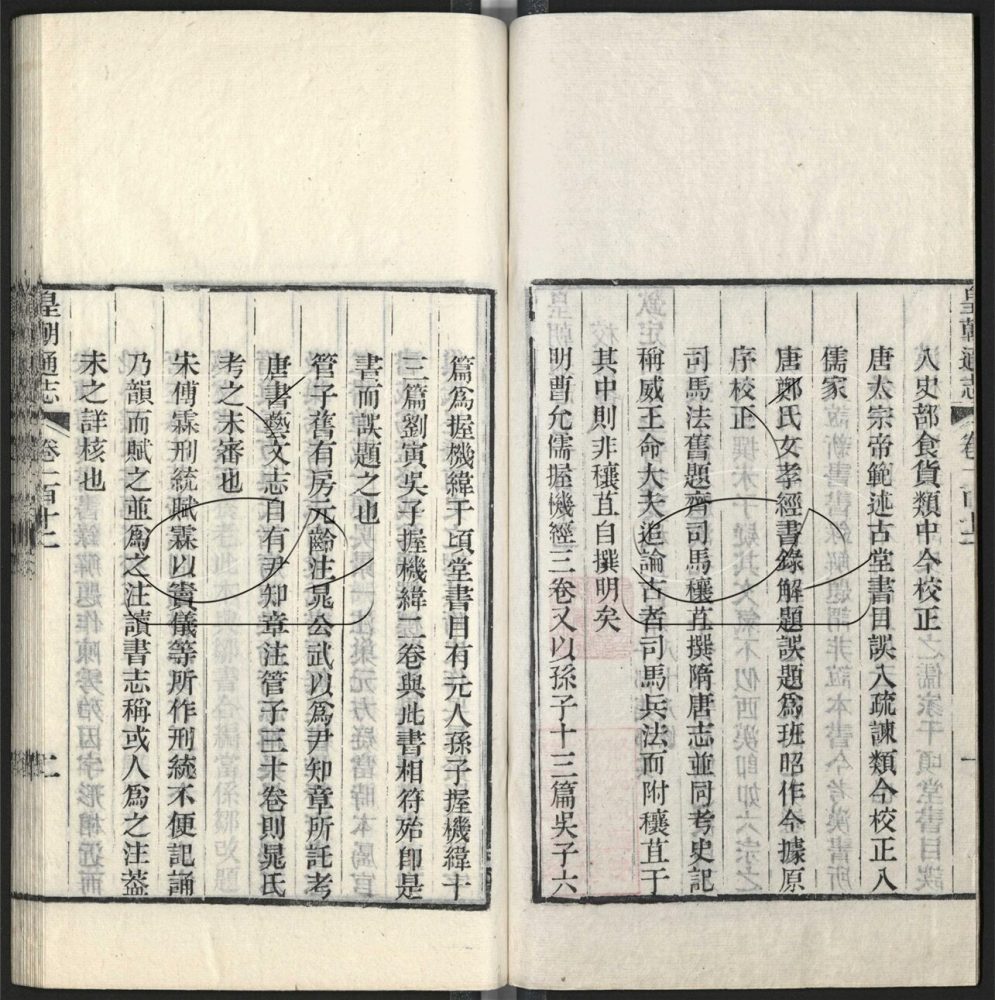 皇朝通志
卷一百十二
一
入史部食貨類中今校正
唐太宗帝範述古堂書目誤入疏諫類今校正入
儒家
唐鄭氏女孝經書錄解題誤題爲班昭作今據原
序校正
司馬法舊題齊司馬穰苴撰隋唐志並同考史記
稱威王命大夫追論古者司馬兵法而附穰苴于
其中則非穰苴自撰明矣
明曹允儒握機經三卷又以孫子十三篇吳子六
篇爲握機緯千頃堂書目有元人孫子握機緯十
三篇劉寅吳子握機緯二卷與此書相符殆卽是
書而誤題之也
管子舊有房元齡注晁公武以爲尹知章所託考
唐書藝文志自有尹知章注管子三十卷則晁氏
考之未審也
宋傅霖刑統賦霖以竇儀等所作刑統不便記誦
乃韻而賦之並爲之注讀書志稱或人爲之注葢
未之詳核也
皇朝通志
卷一百十二
二